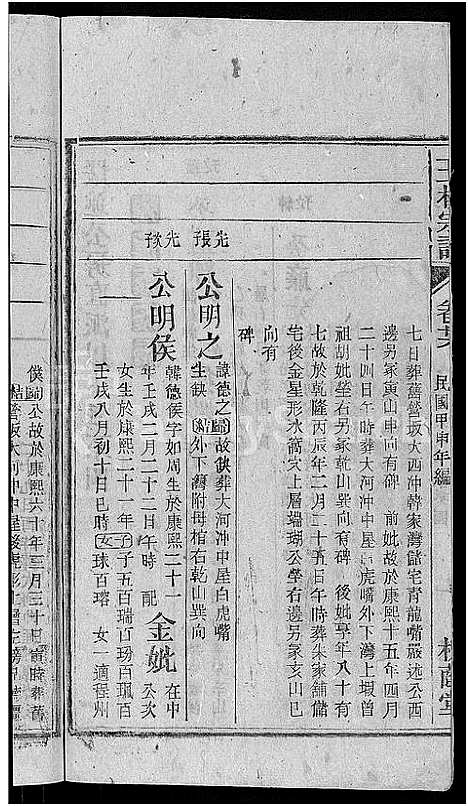 王林宗譜
卷廿六
民國甲申年編
七日葬舊營坂大西冲韓家灣儲宅青龍嘴嚴述公酉
邊另冢寅山申向有碑 前妣故於康熙十五年四月
二十四日午時葬大河冲中屋白虎嘴外下灣上塅曾
祖胡妣塋右另冢乾山巽向有碑 後妣享年八十有
七故於乾隆丙辰年二月二十五日午時葬朱家舖儲
宅後金星形水窩穴上層端瑚公學有邊另冢亥山巳
向有
碑
先張
公明之
諱德之歸故俱葬大河冲中屋白虎嘴
生缺 外下灣附母棺右乾山巽向
先孜
公明侯
韓德侯字如周生於康熙二十一
年壬戌二月二十二日午時 配
金妣
在中
公次
女生於康熙二十一年子五百瑞百㻛百珮百
壬戌八月初十日巳時女珠百瑢 女一適程州
僕歸公故於康熙六十年三月三十日寅時葬舊